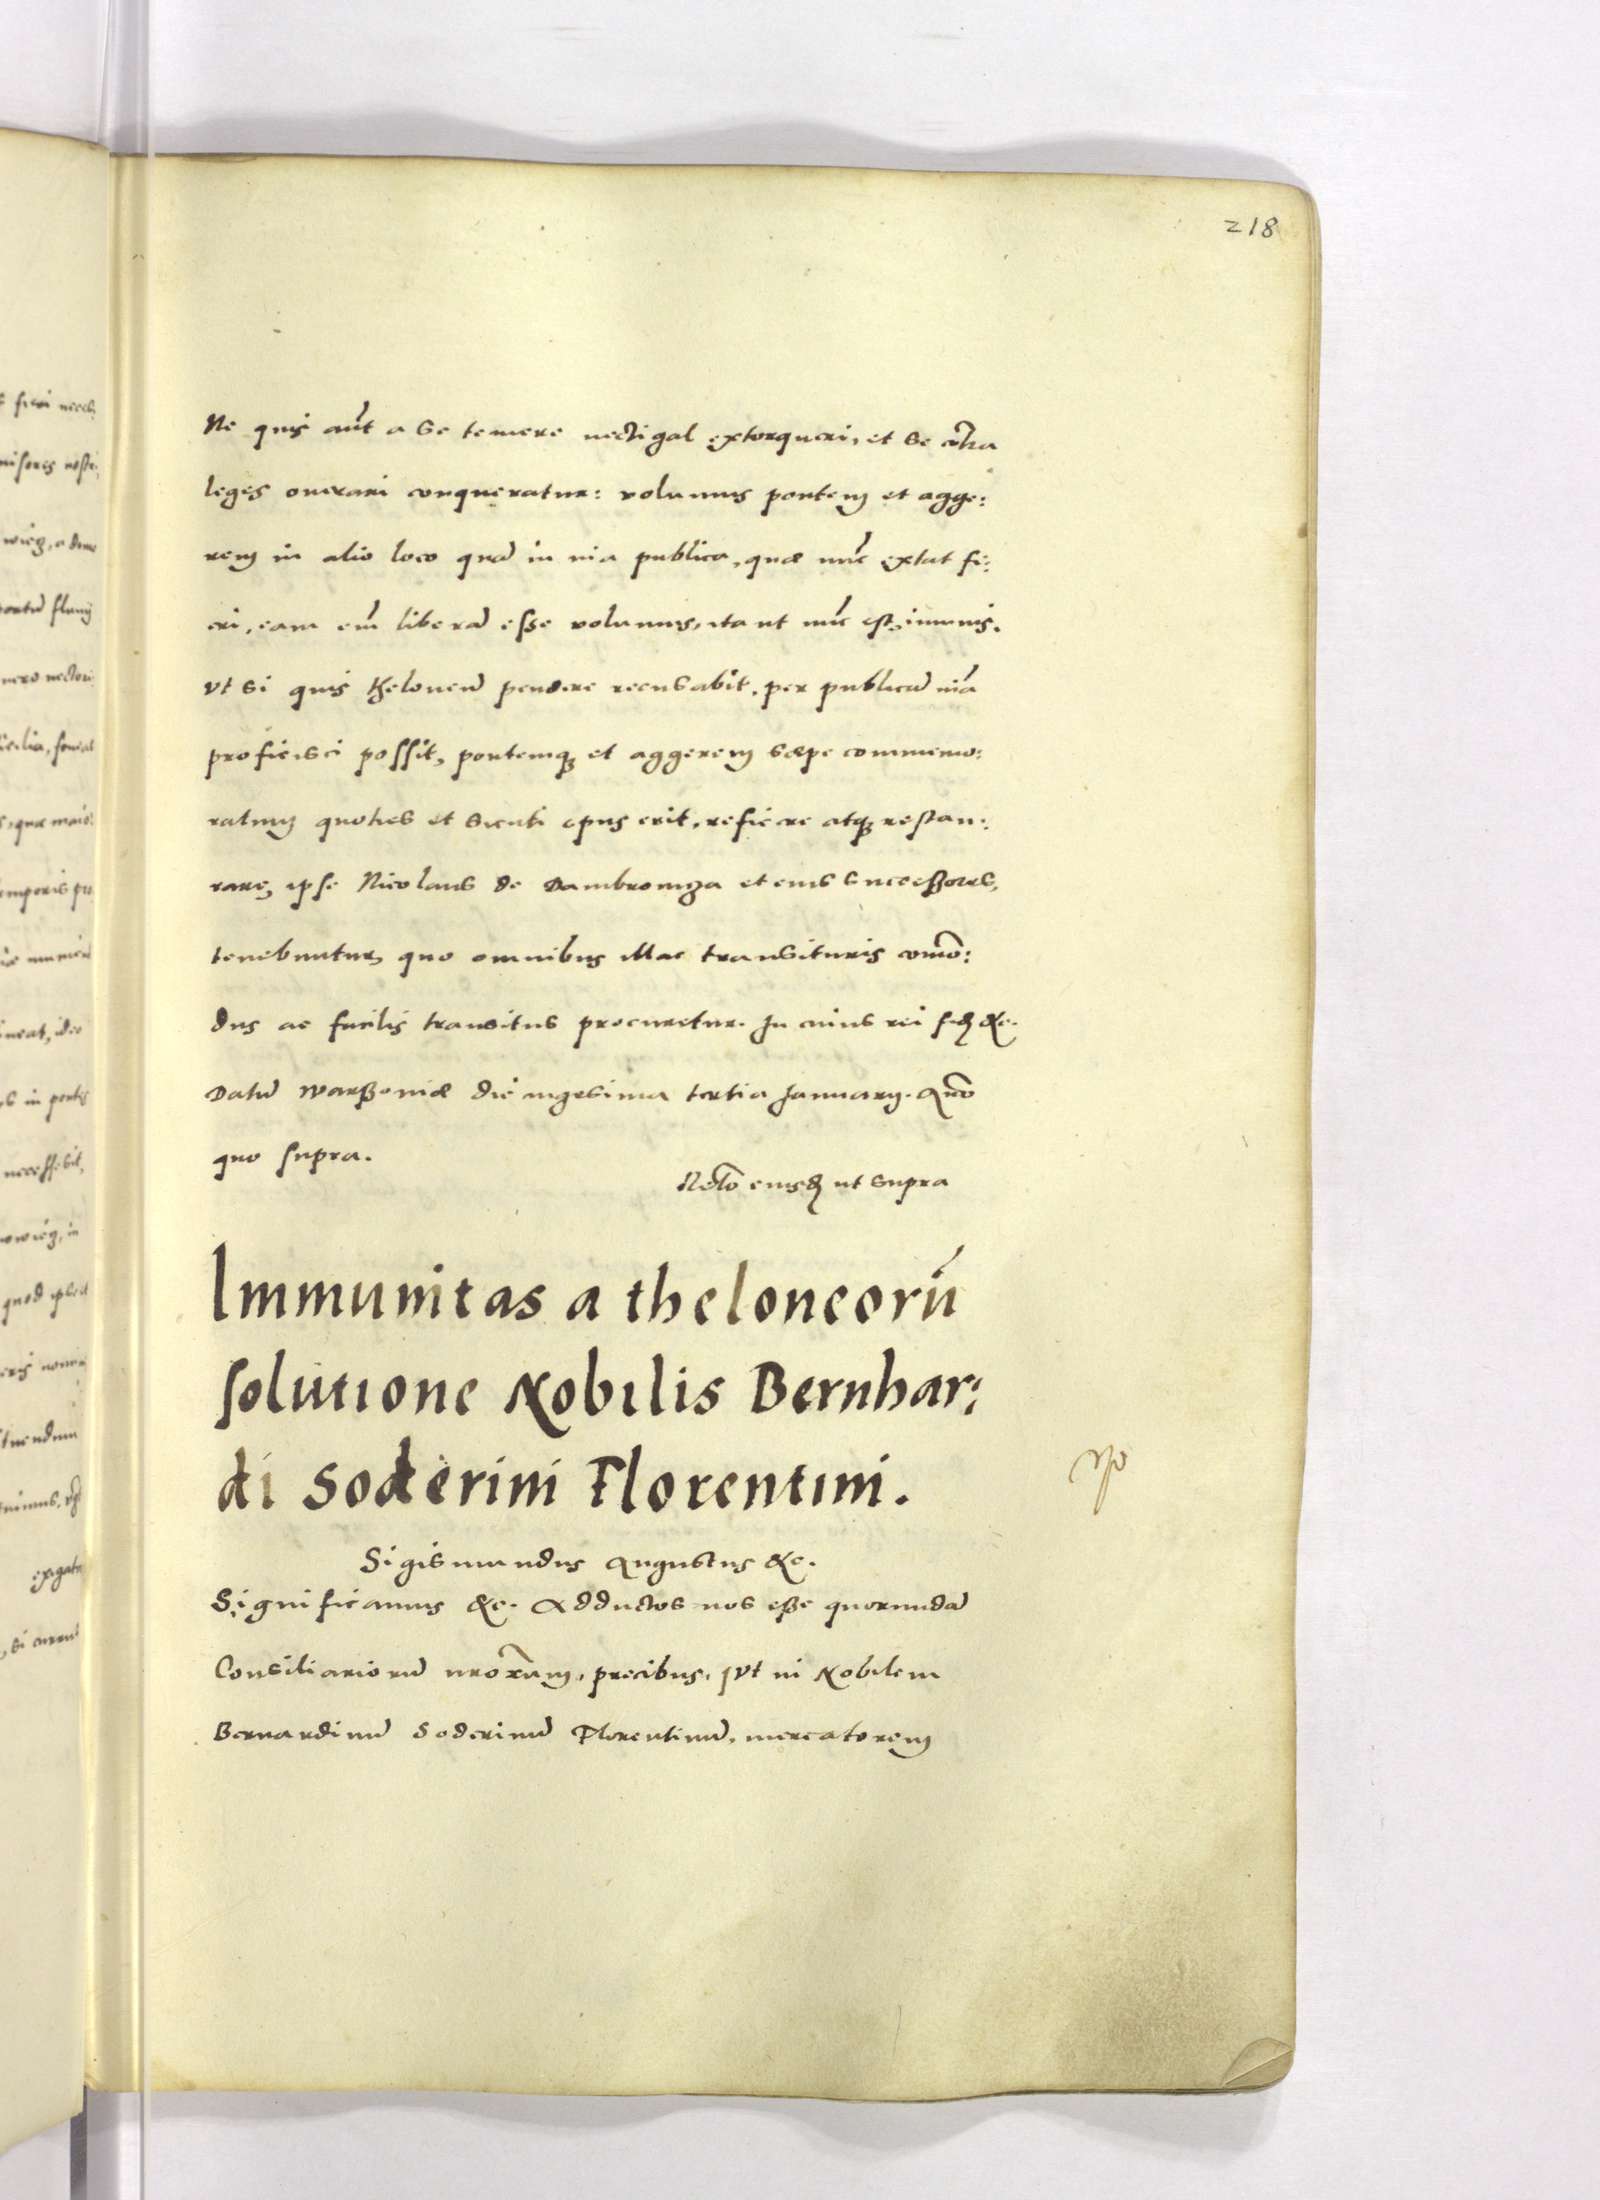 218
Ne quis aūt a se temere uectigal extorqueri, et se cōtra
leges onerari conqueratur: volumus pontem et agge:
rem in alio loco quā in uia publica, quæ nūc extat fi:
eri, eam em̄ liberā esse volumus, ita ut nūc est, immunis.
vt si quis theloneū pendere recusabit, per publicā uiā
proficisci possit, pontemq; et aggerem sæpe commemo:
ratum quoties et sicuti opus erit, reficere atq; restau:
rare, ipse Nicolaus de Dambrowiza et eius successores,
tenebuntur, quo omnibus illac transituris com̄o:
dus ac facilis transitus procuretur. In cuius rei fid &c.
Datū Warssouiæ die uigesima tertia Januarij. Anno
quo supra.
Relō eiusd ut supra
Immunitas a theloneorū
solutione Nobilis Bernhar:
di Soderini Florentini.
Sigismundus Augustus &c.
Significamus &c. Adductos nos esse quorundā
Consiliariorū nrorum, precibus, vt in Nobilem
Bernardinū Soderinū Florentinū, mercatorem